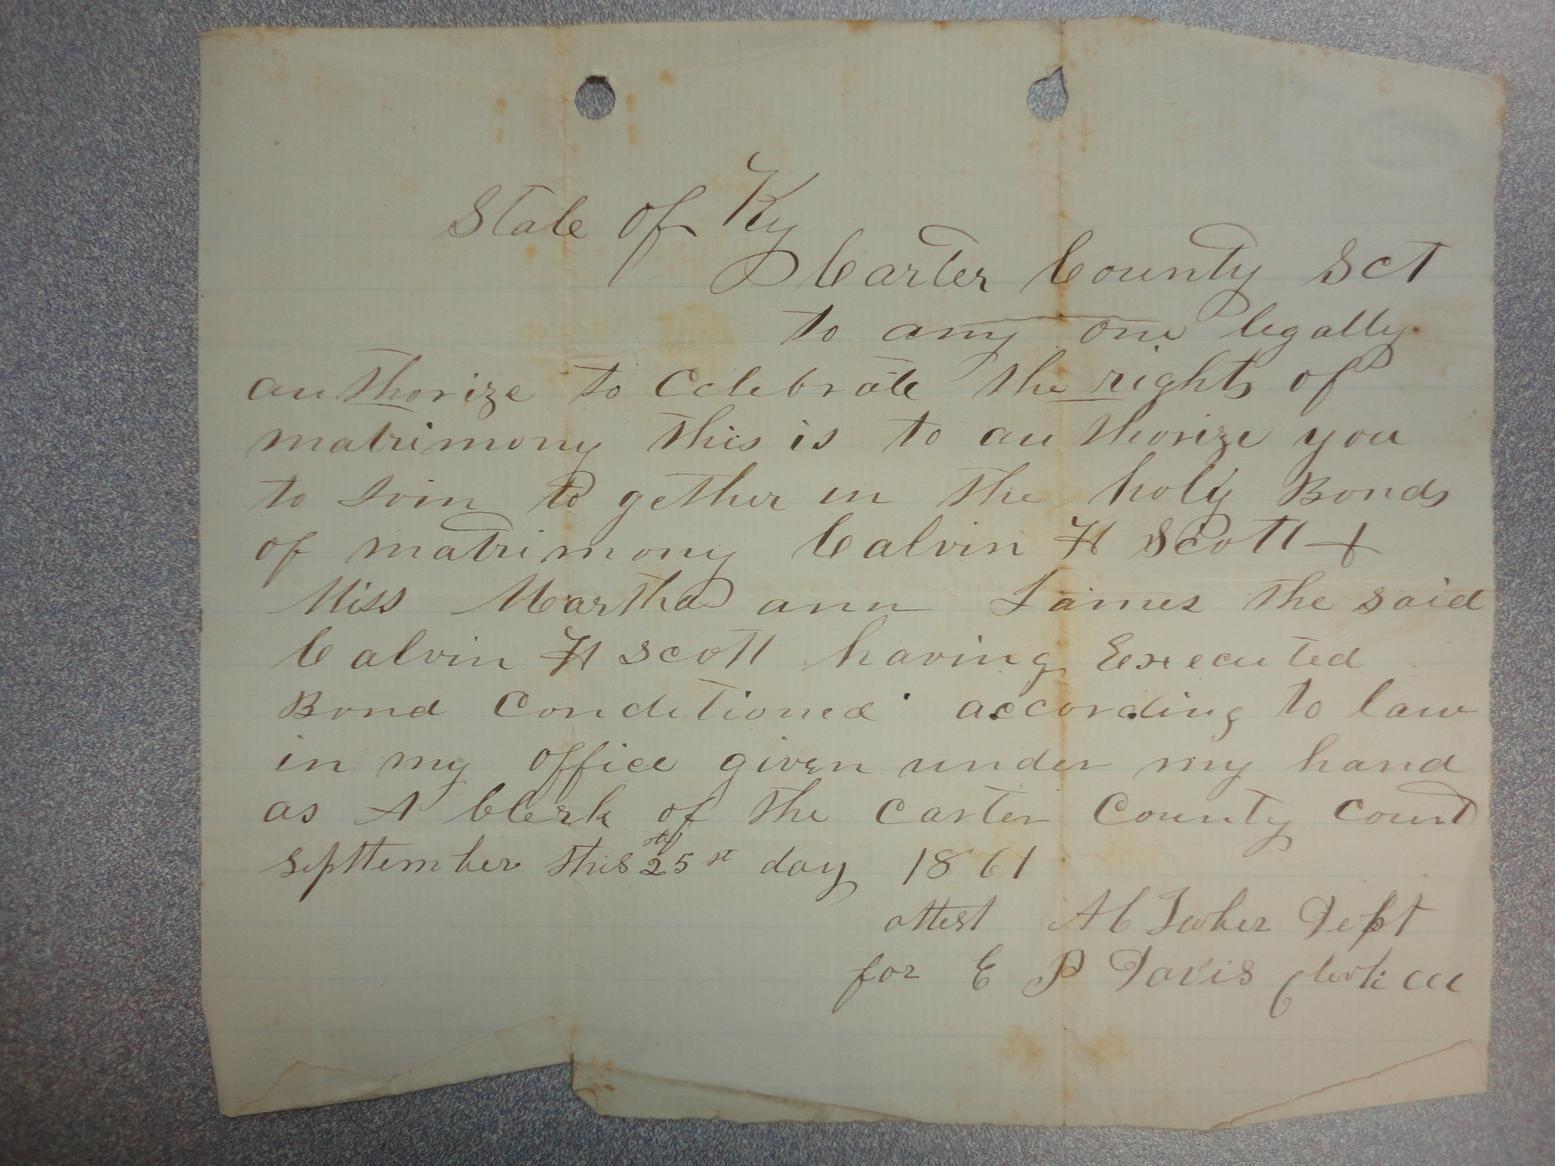 State of Ky
Carter County Sct
to any one legally
authorize to Celebrate the rights of
matrimony this is to authorize you
to Join to gether in the holy Bonds
of matrimony Calvin H Scott +
Miss Martha ann James the said
Calvin H Scott having Executed
Bond Conditioned according to law
in my office given under my hand
as A Clerk of the Carter County Court
September this 25 st day 1861
attest A C Dept
for E P Davis Clerk CCC